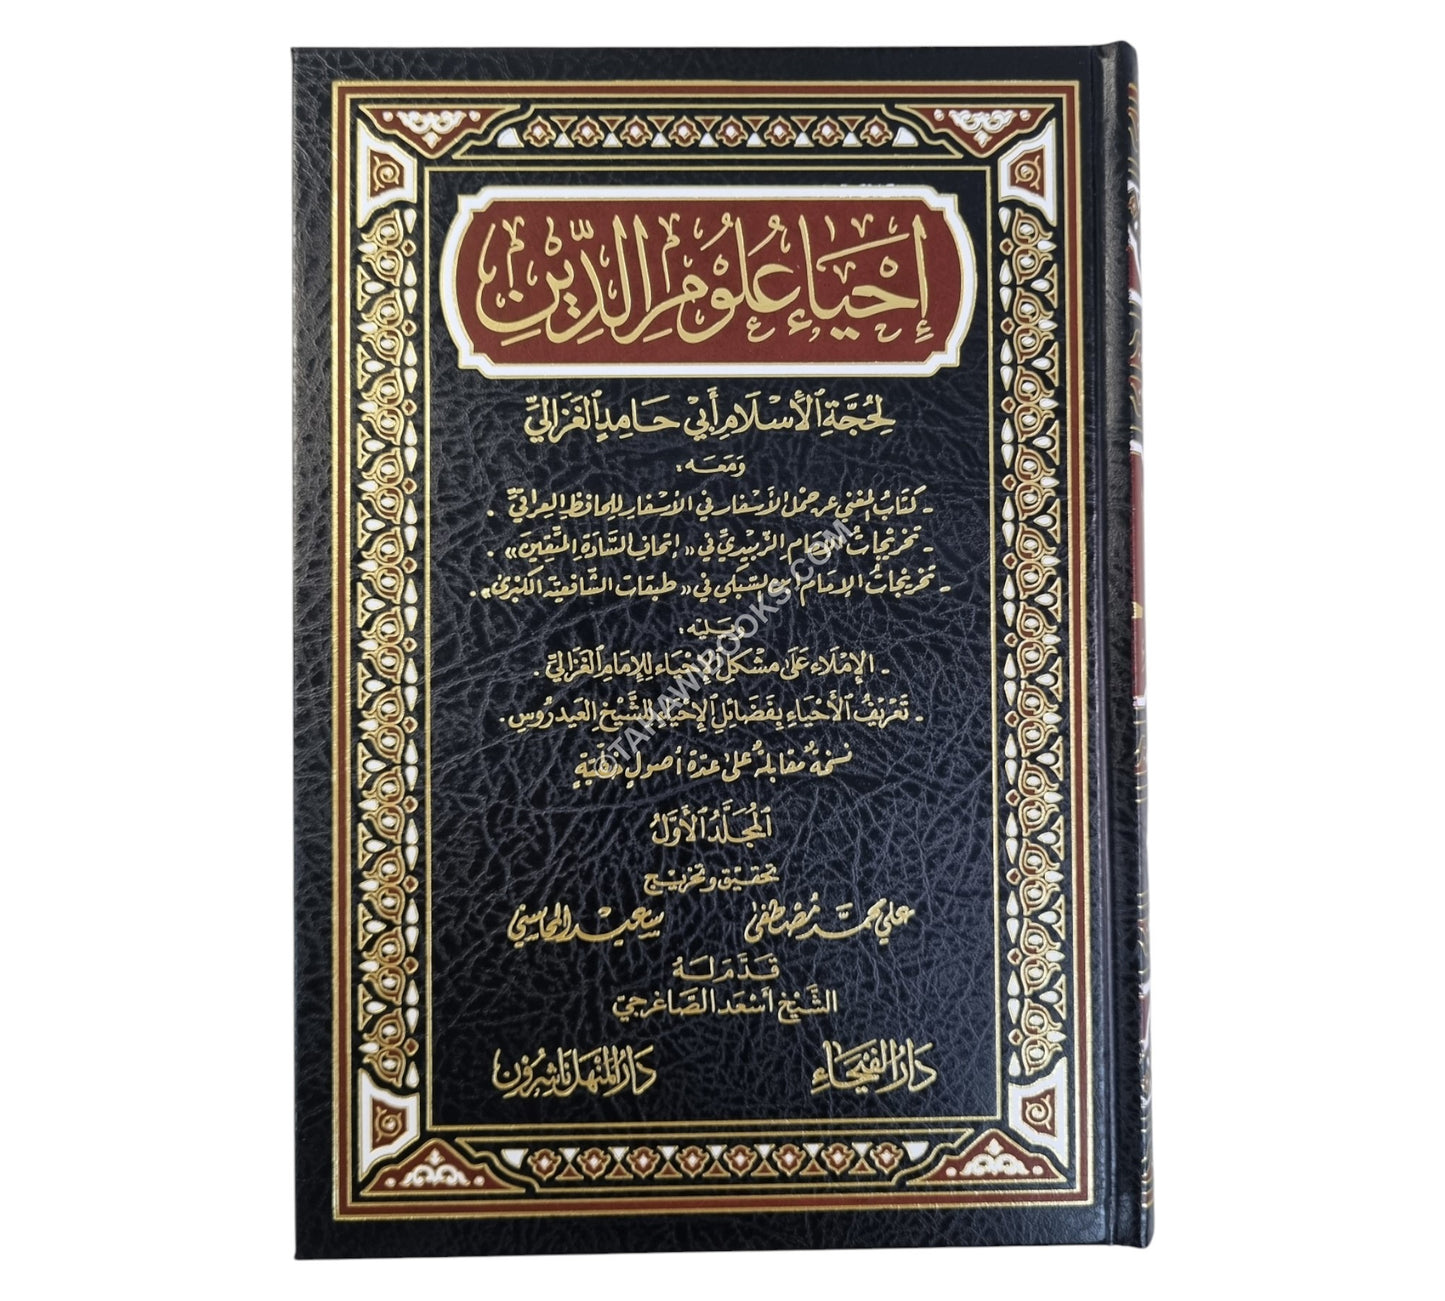 إِحْيَاءُ عُلُومِ الدِّيْنِ
لِحُجَّةِ الْأِسْلَامِ أَبِيْ حَامِدٍ الْغَزَالِيِّ
وَمَعَهُ :
- كِتَابُ المغني عن حمل الأسفار في الأسفار للحافظ العراقيّ .
- تخريجاتُ الإمام الزّبيديِّ في « إتحاف السَّادَة المتّقين » .
- تخريجاتُ الإمام ابن السّبكي في « طبقات الشّافعيّة الكبرى » .
ويليه :
- الإملاء على مشكل الإحياء للإمام الغزاليّ .
- تعريفُ الأحياء بفضائل الإحياء للشَّيخ العيدروس .
نسخةٌ مقابلةٌ على عدّة أصولٍ خطّيّةٍ
المُجَلَّدُ الأَوَّلُ
تحقيق وتخريج
علي محمّد مُصْطفى سعيد المحاسني
قَدَّمَ لَهُ
الشَّيْخ أسْعَد الصَّاغرجيّ
دَارُ الفَيْحَاءِ دَارُ المَنْهَل نَاشِرُوْن
©TAHAWIBOOKS.COM